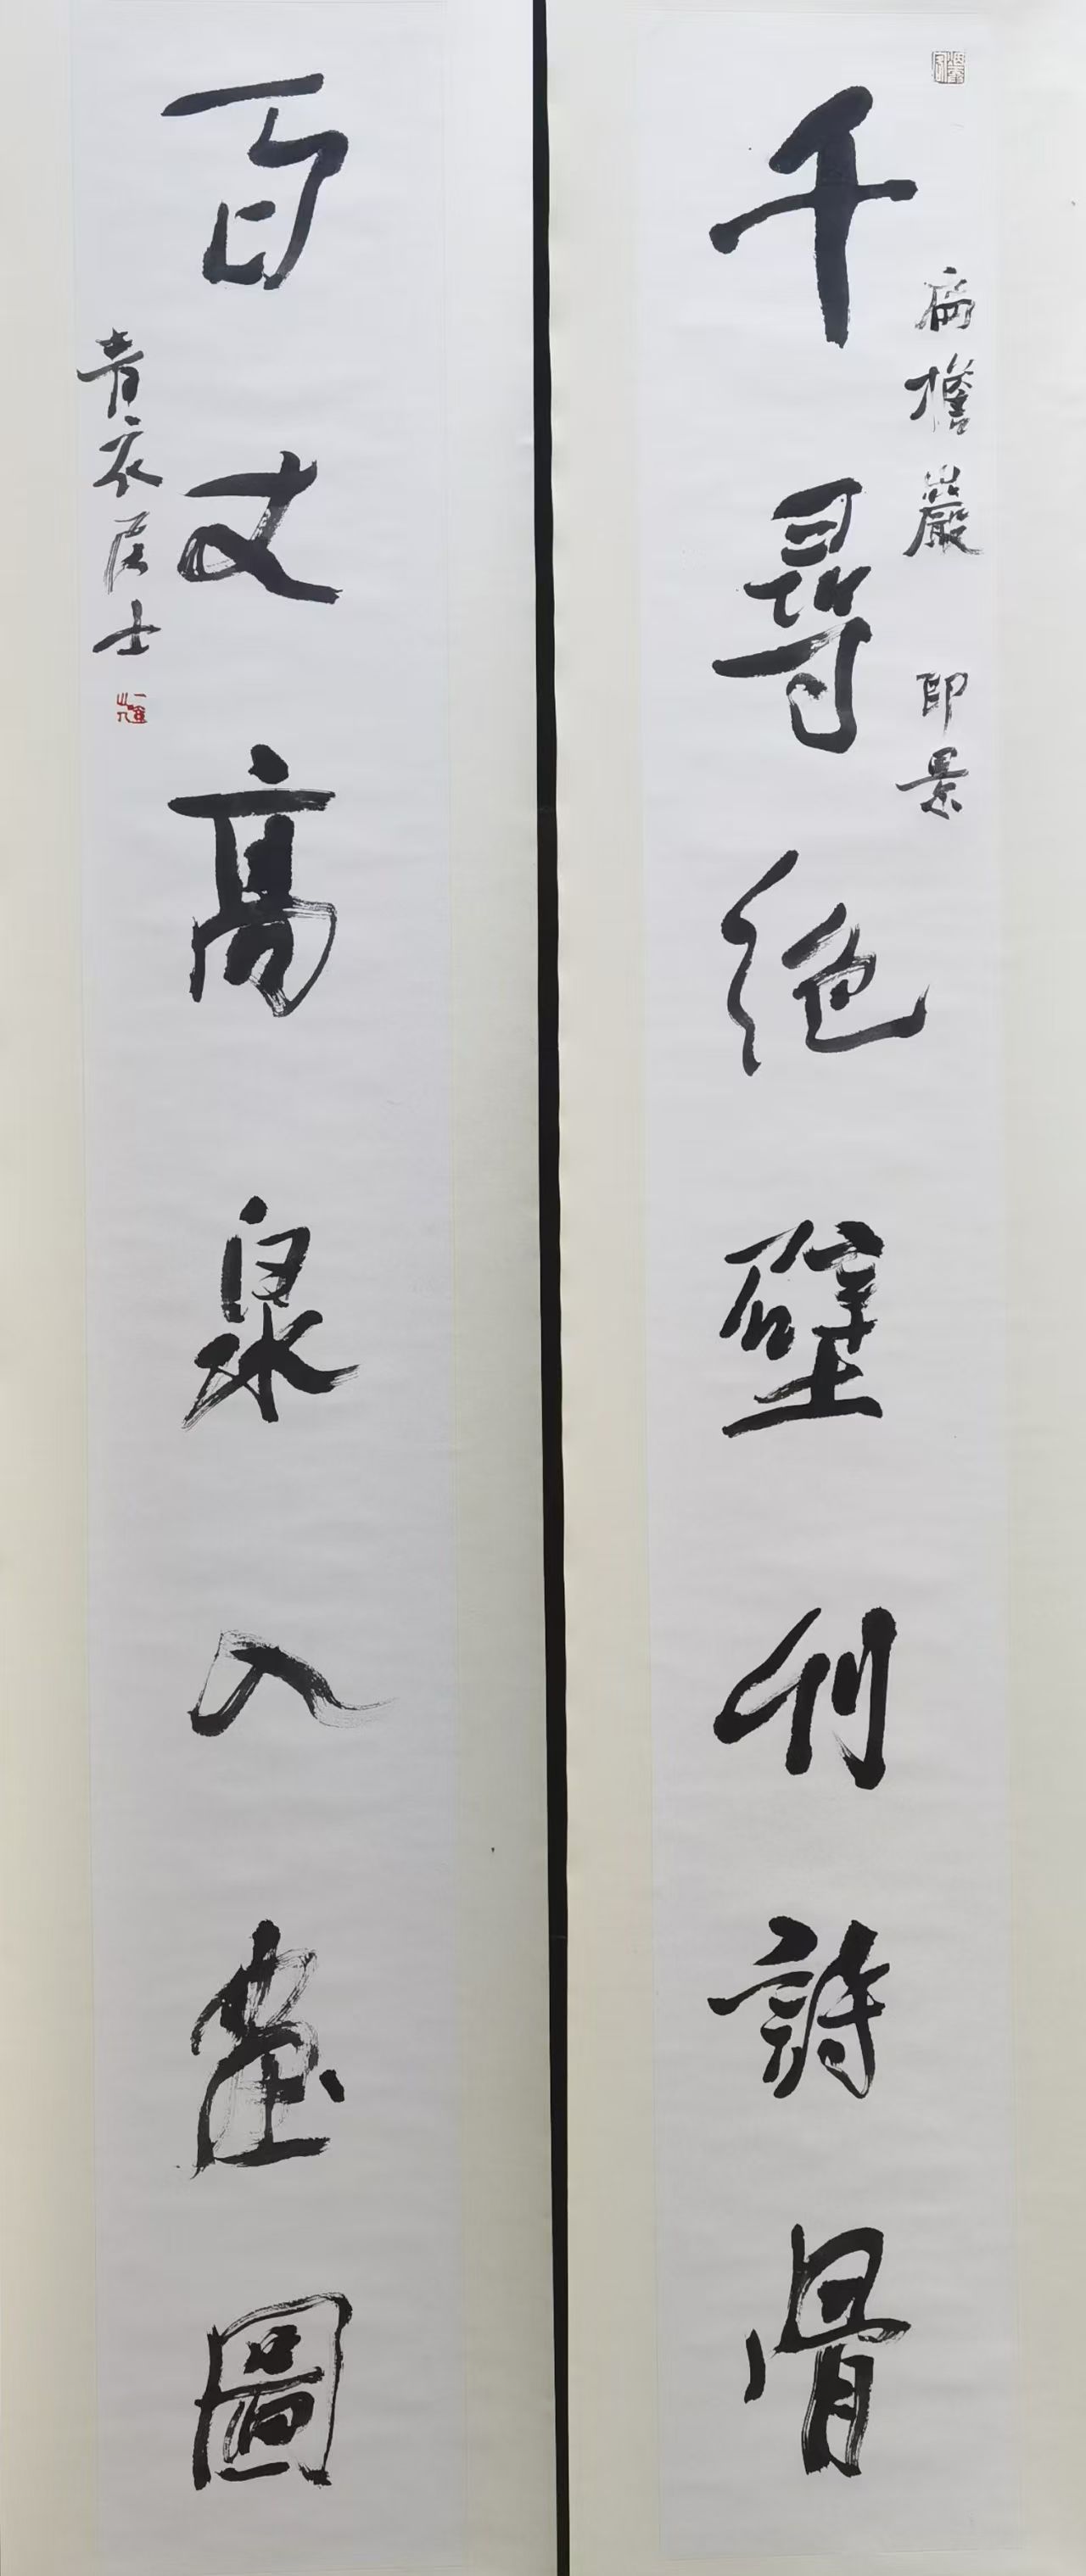 千尋絕壁刊詩骨
扁擔巖 即景
百丈高泉入畫圖
青衣居士